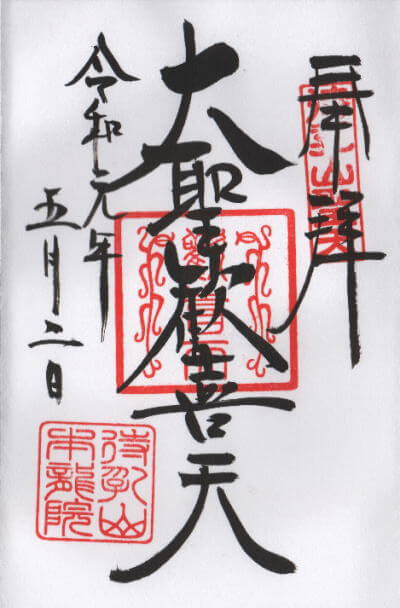 奉拝
大聖歓喜天
令和元年
五月二日
待乳山
本龍院